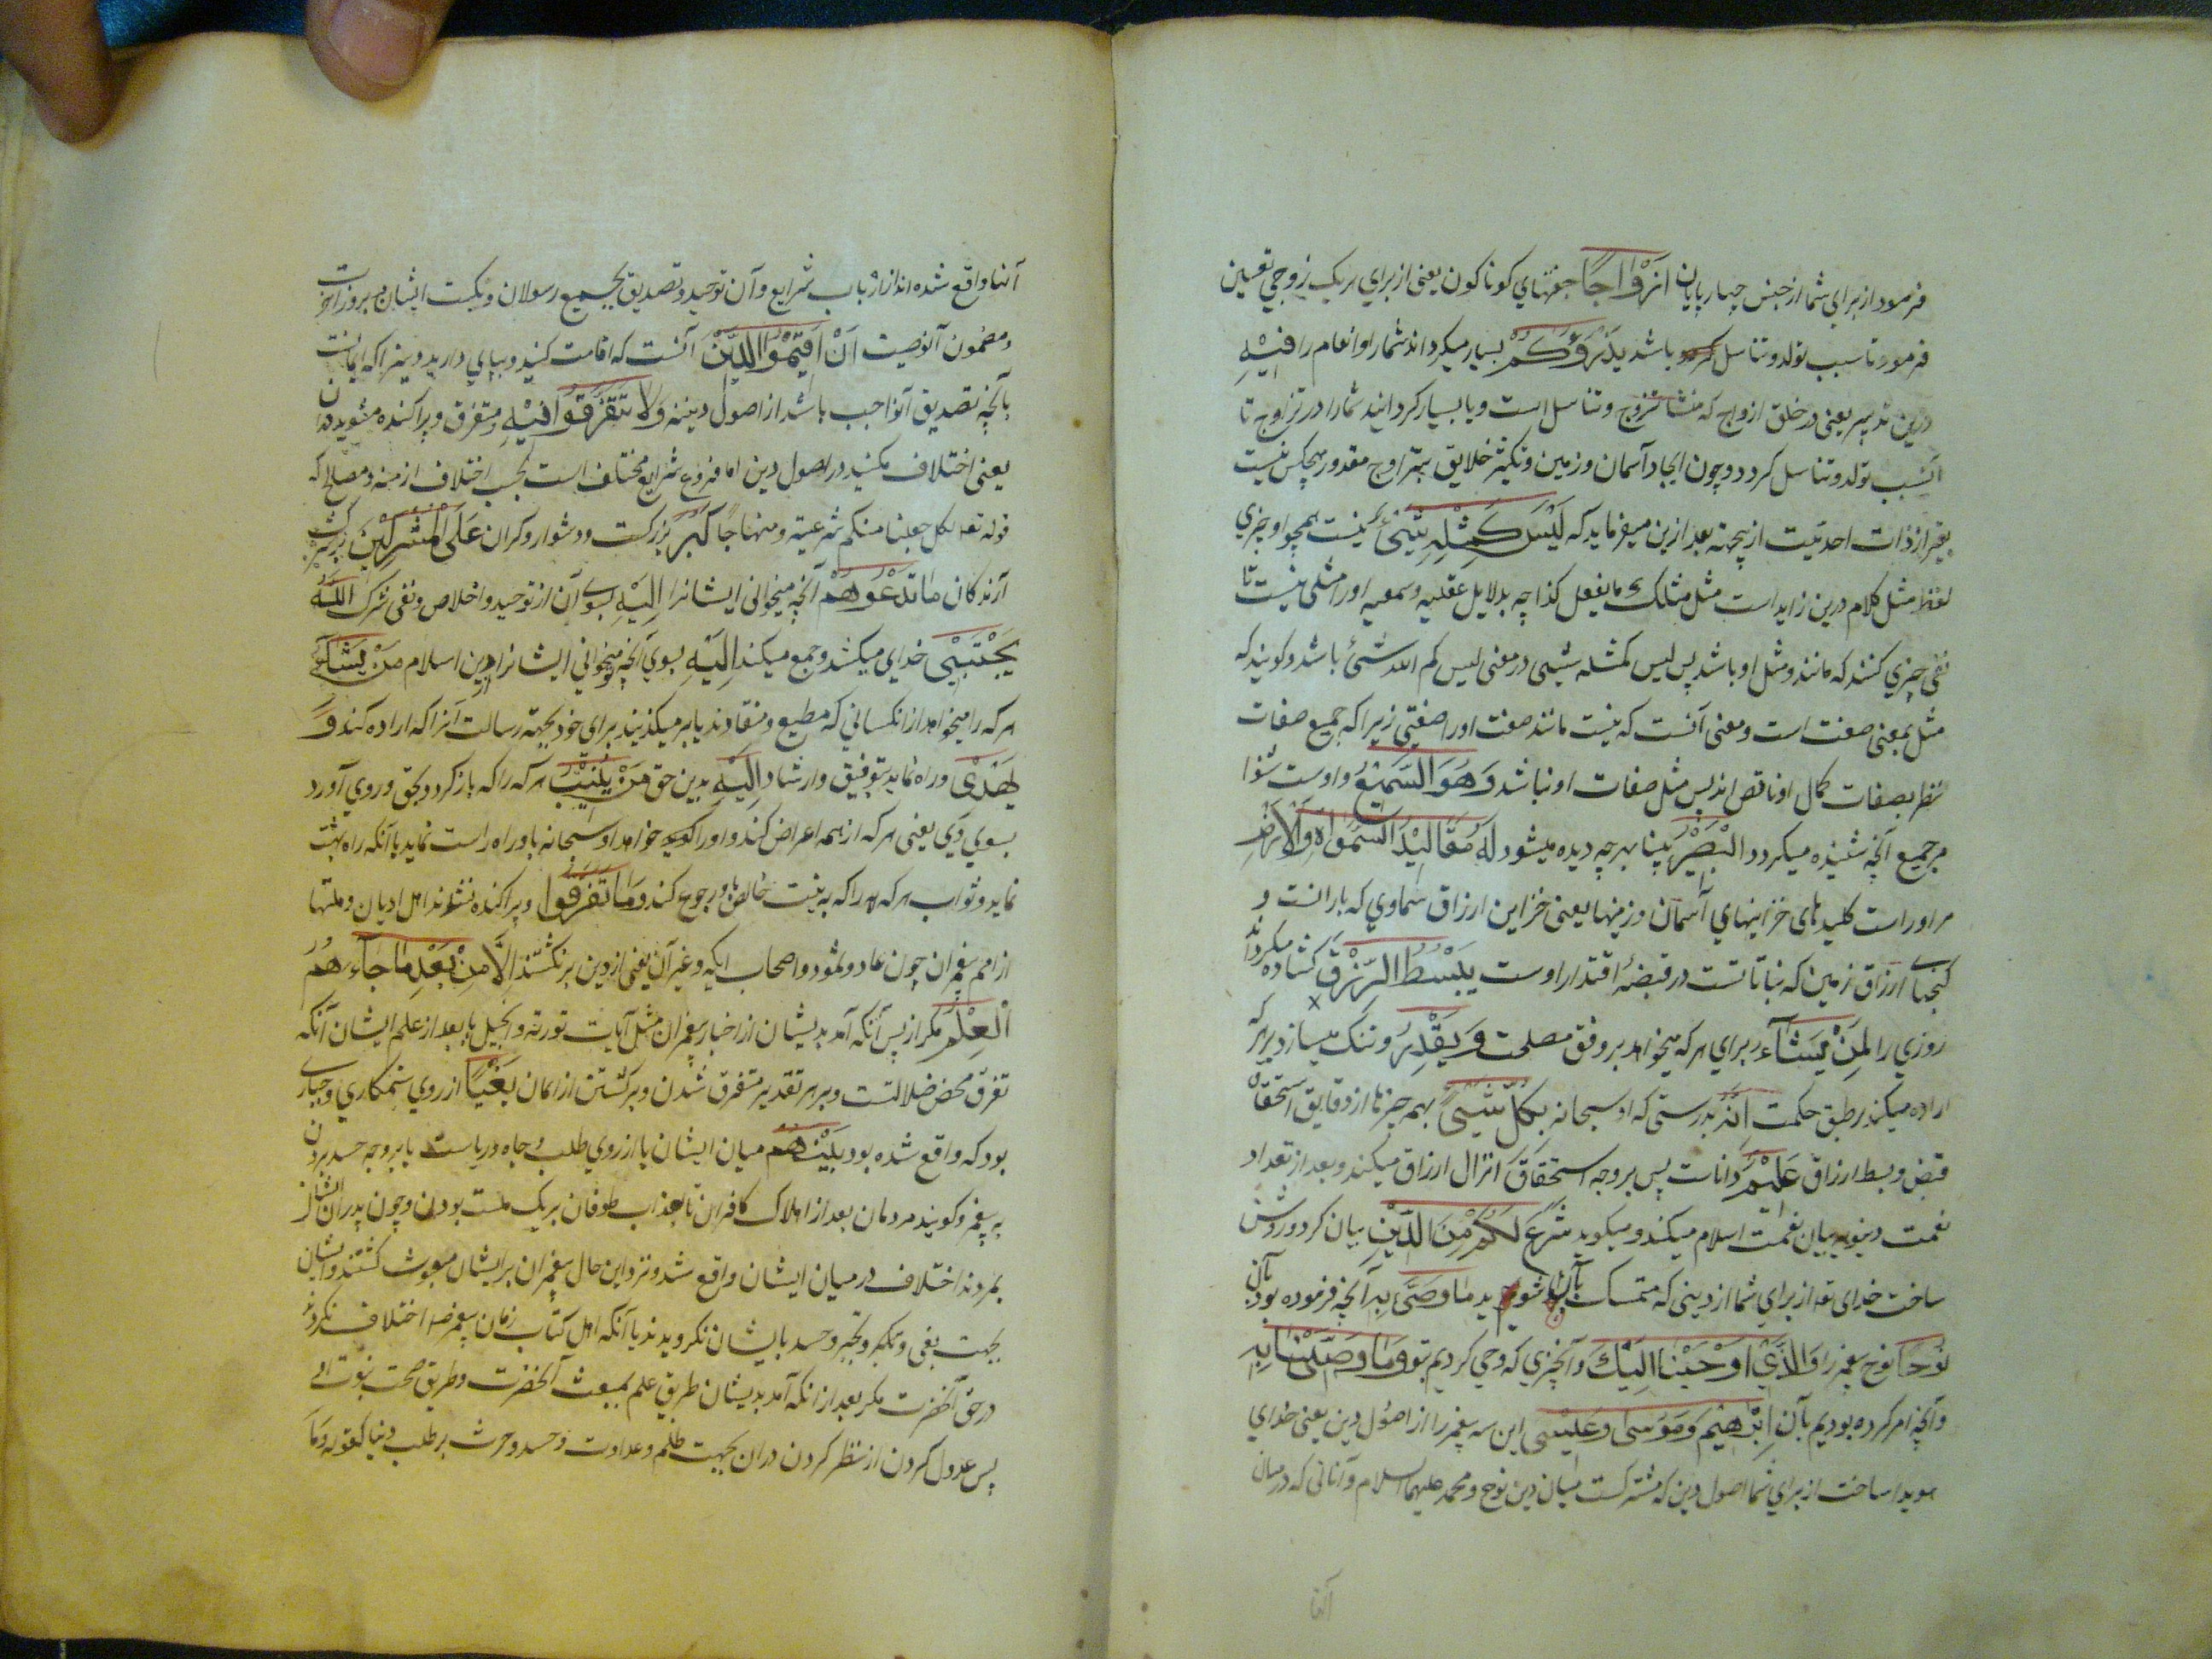 فرمود از براي شما از جنس چهارپایان اَزْوَاجًا جفتهاي کوناکون یعنی از براي هر یک زوجی تعیین
فرمود تا سبب تولد و تناسل باشد یَذْرَؤُکُمْ بسیار میکرداند شما را و انعام را فِیْهِ
درین تدبیر یعنی در خلق ازواج که منشا تزوج و تناسل است و یا بسیار کردانید شما را در تزاوج تا
بسبب تولد و تناسل کردد و چون ایجاد آسمان و زمین و تکثیر خلایق بتزاوج مقدور هیچکس نیست
بغیر از ذات احدیت ازینجهة بعد ازین میفرماید که لَیْسَ کَمِثْلِهِ شَیْئٌ نیست همچو او چیزي
لفظ مثل کلام درین زاید است مثل مثلک ما یفعل کذا چه بدلایل عقلیه و سمعیه او را مثلی نیست تا
نفی چیزي کنند که مانند و مثل او باشد پس لیس کمثله شیئی در معنی لیس کم الله شئ باشد و کویند که
مثل بمعنی صفت است و معنی آنست که نیست مانند صفت او را صفتی زیرا که جمیع صفات
نظر بصفات کمال او ناقص اند پس مثل صفات او نباشد وَهُوَ السَّمِیْعُ و اوست شنوا
مر جمیع آنچه شنیده میکردد الْبَصِیْرُ بینا بهر چه دیده میشود لَهُ مَقَالِیْدُ السَّمٰوَاتِ وَالْاَرْضِ
مر او راست کلیدهای خزاینهاي آسمان و زمینها یعنی خزاین ارزاق سماوي که بارانست و
کنجهاے ارزاق زمین که نباتاتست در قبضۀ اقتدار اوست یَبْسُطُ الرِّزْقَ کشاده میکرداند
روزي را لِمَنْ یَشَآءُ براي هر که میخواهد بر وفق مصلحت وَیَقْدِرُ و تنک میسازد بر هر که
اراده میکند بر طبق حکمت اِنَّهُ بدرستی که او سبحانه بِکُلِّ شَیْیءٍ بهمه چیزها از دقایق استحقاق
قبض و بسط ارزاق عَلِیْمٌ داناست پس بر وجه استحقاق انزال ارزاق میکند و بعد از تعداد
نعمت دنیویه بیان نعمت اسلام میکند و میکوید شَرَعَ لَکُمْ مِنَ الدِّیْنِ بیان کرد و روشن
ساخت خدای تعه از براي شما از دینی که متمسک بآن شوید مَا وَصّٰی بِهِ آنچه فرموده بود بآن
نُوْحًا نوح پیغمبر را وَالَّذِيْ اَوْحَیْنَا اِلَیْكَ و آنچیزي که وحی کردیم بتو وَمَا وَصَّیْنَا بِهِ
و آنچه امر کرده بودیم بآن اِبْرٰهِیْمَ وَمُوْسٰی وَعِیْسٰی این سه پیغمبر را از اصول دین یعنی خداي
هویدا ساخت از براي شما اصول دین که مشترکست میان دین نوح و محمد علیهما السلام و آنانی که در میان
آنها
آنها واقع شده اند از ارباب شرایع و آن توحید و تصدیق بجمیع رسولان و بکتب ایشان و بروز آخرت
و مضمون آنوصیت اَنْ اَقِیْمُوْا الدِّیْنَ آنست که اقامت کنید و بپاي دارید دینرا که ایمانست
بآنچه تصدیق آنواجب باشد از اصول دینیه وَلَا تَتَفَرَّقُوْا فِیْهِ و متفرق و پراکنده مشوید در آن
یعنی اختلاف مکنید در اصول دین اما فروع شرایع مختلف است بحسب اختلاف ازمنه و مصالح که
قوله تعه لکل جعلنا منکم شرعیة و منهاجًا کَبُرَ بزرکست و دشوار و کران عَلَی الْمُشْرِکِیْنَ بر شرک
آرندکان مَا تَدْعُوْهُمْ آنچه میخوانی ایشانرا اِلَیْهِ بسوے آن از توحید و اخلاص و نفی شرک اَللّٰهُ
یَجْتَبِیْ خداي میکشد و جمع میکند اِلَیْهِ بسوي آنچه میخوانی ایشانرا از دین اسلام مَنْ یَشَآءُ
هر که را میخواهد از انکسانی که مطیع و منقادند یا بر میکذیند براي خود بجهة رسالت آنرا که اراده کند وَ
یَهْدِیْ و راه نماید بتوفیق و ارشاد اِلَیْهِ بدین حق مَنْ یُنِیْبُ هر که را که باز کردد بحق و روي آورد
بسوي وَي یعنی هر که از همه اعراض کند و او را خواهد او سبحانه باو راه راست نماید یا آنکه راه بهشت
نماید و ثواب هر که را که به نیت خالص باو رجوع کند وَمَا تَفَرَّقُوا و پراکنده نشدند اهل ادیان و ملتها
از امم پیغمبران چون عاد و ثمود و اصحاب ایکه و غیر آن یعنی از دین برنکشتند اِلَّا مِنْ بَعْدِ مَا جَاءَهُمُ
الْعِلْمُ مکر از پس آنکه آمد بدیشان از اخبار پیغمبران مثل آیات توریة و انجیل یا بعد از علم ایشان آنکه
تفرق محض ضلالتست و بر هر تقدیر متفرق شدن و برکشتن از ایمان بَغْیًا از روي ستمکاري و جباري
بود که واقع شده بود بَیْنَهُمْ میان ایشان یا از روي طلب جاه و ریاست یا بر وجه حسد بردن
به پیغمبر و کویند مردمان بعد از اهلاک کافران تا بعذاب طوفان بر یک ملت بودن و چون پدران ایشان
بمردند اختلاف در میان ایشان واقع شد و نزد این حال پیغمبران بر ایشان مبعوث کشتند و ایشان
بجهت بغی و تکبر و تجبر و حسد بایشان نکرویدند یا آنکه اهل کتاب زمان پیغمبر صه اختلاف نکردند
در حق آنحضرت مکر بعد از انکه آمد بدیشان طریق علم بمبعث آنحضرت و طریق صحت نبوت او
پس عدول کردن از نظر کردن دران بجهت ظلم و عداوت و حسد و حرث بر طلب دنیا کقوله وَمَا